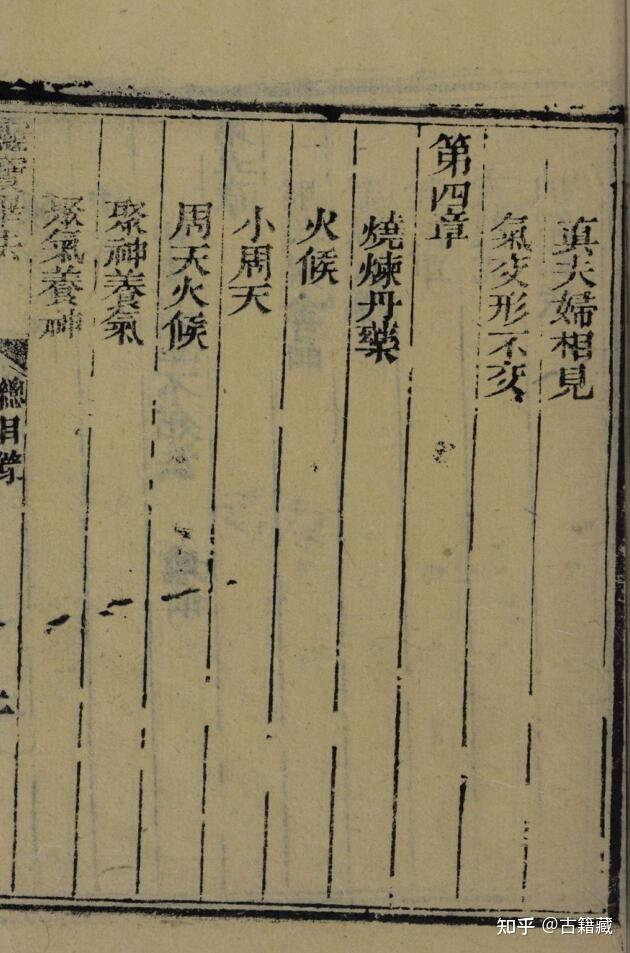 真夫婦相見
氣交形不交
第四章
燒煉丹藥
火候
小周天
周天火候
聚神養氣
聚氣養神
總目錄
知乎 @古籍藏